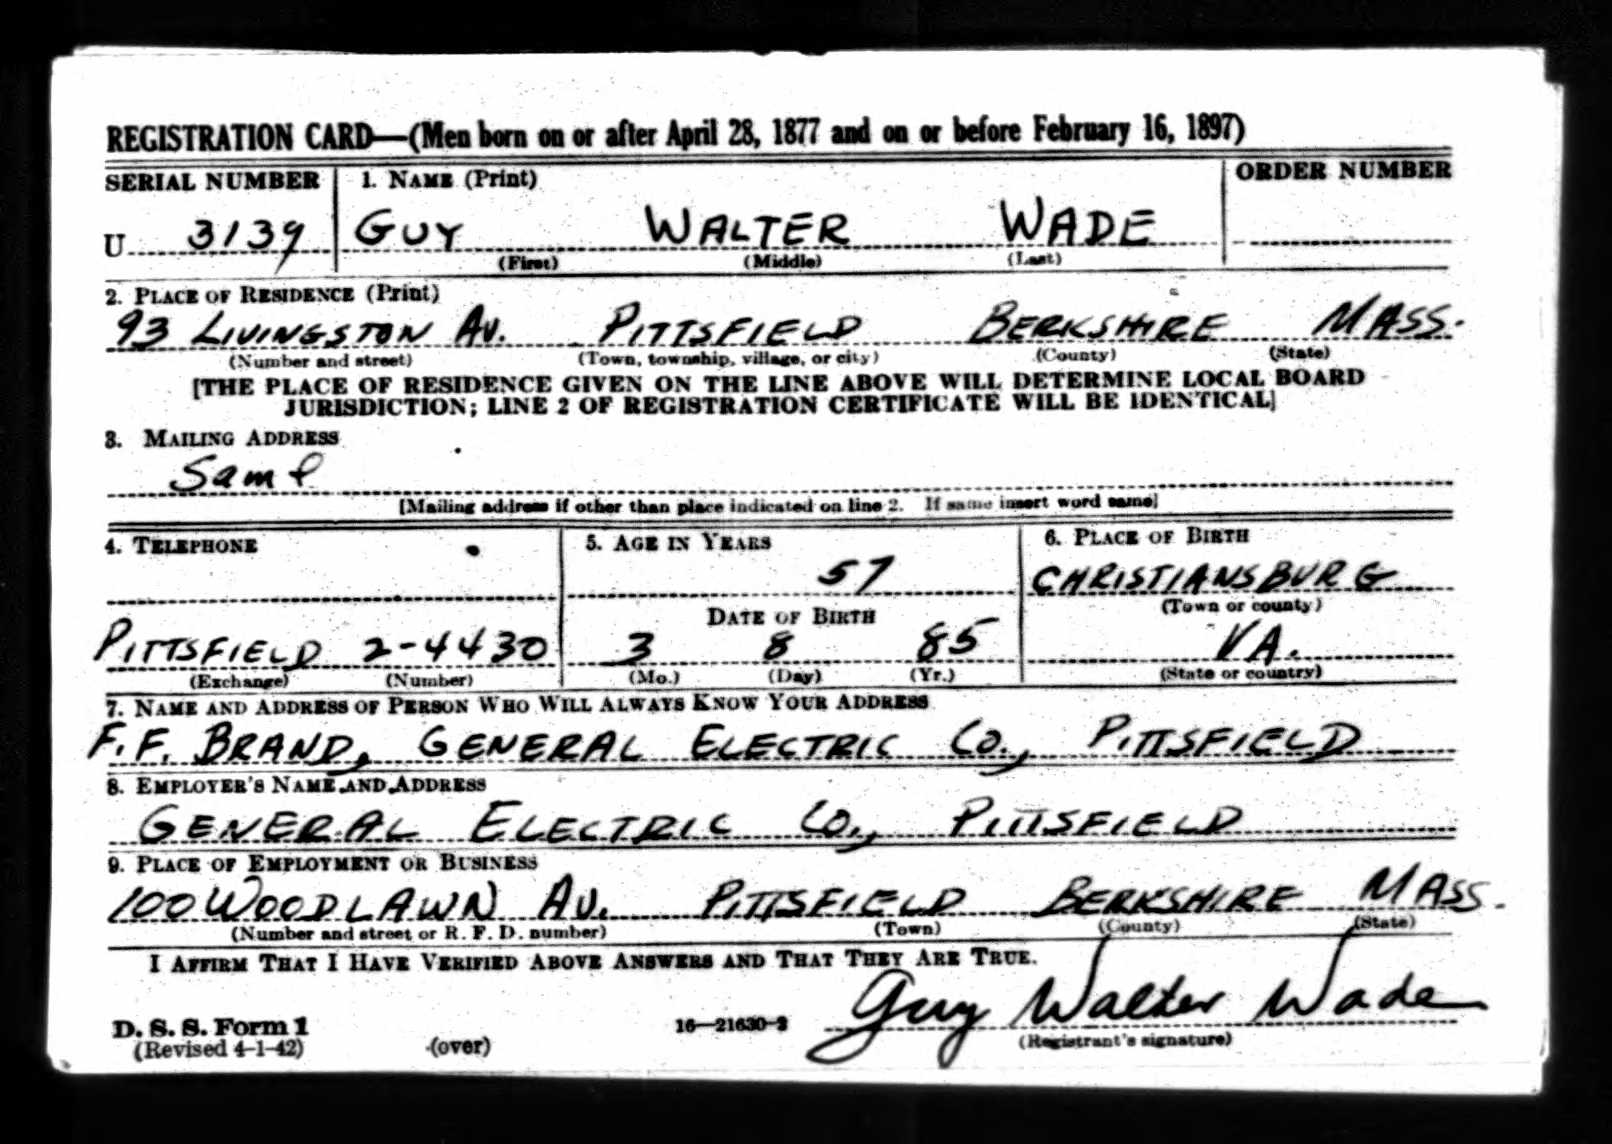 REGISTRATION CARD—(Men born on or after April 28, 1877 and on or before February 16, 1897)
SERIAL NUMBER 1. NAME (Print) ORDER NUMBER
U 3139 GUY WALTER WADE
(First) (Middle) (Last)
2. PLACE OF RESIDENCE (Print)
93 LIVINGSTON AV. PITTSFIELD BERKSHIRE MASS.
(Number and street) (Town, township, village, or city) (County) (State)
[THE PLACE OF RESIDENCE GIVEN ON THE LINE ABOVE WILL DETERMINE LOCAL BOARD
JURISDICTION; LINE 2 OF REGISTRATION CERTIFICATE WILL BE IDENTICAL]
3. MAILING ADDRESS
Same
[Mailing address if other than place indicated on line 2. If same insert word same]
4. TELEPHONE 5. AGE IN YEARS 6. PLACE OF BIRTH
57 CHRISTIANSBURG
DATE OF BIRTH (Town or county)
PITTSFIELD 2-4430 3 8 85 VA.
(Exchange) (Number) (Mo.) (Day) (Yr.) (State or country)
7. NAME AND ADDRESS OF PERSON WHO WILL ALWAYS KNOW YOUR ADDRESS
F.F. BRAND, GENERAL ELECTRIC CO., PITTSFIELD
8. EMPLOYER'S NAME AND ADDRESS
GENERAL ELECTRIC CO., PITTSFIELD
9. PLACE OF EMPLOYMENT OR BUSINESS
100 WOODLAWN AV. PITTSFIELD BERKSHIRE MASS.
(Number and street or R. F. D. number) (Town) (County) (State)
I AFFIRM THAT I HAVE VERIFIED ABOVE ANSWERS AND THAT THEY ARE TRUE.
Guy Walter Wade
D. S. S. Form 1 16—21630-2
(Revised 4-1-42) (over) (Registrant's signature)